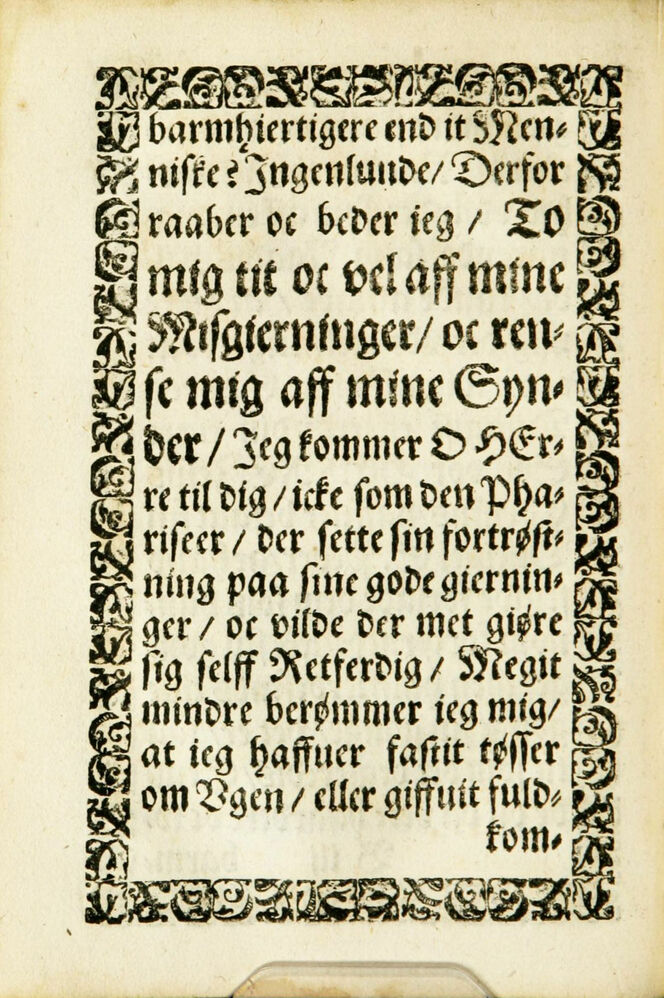 barmhiertigere end it Men⸗
niske? Ingenlunde/ Derfor
raaber oc beder ieg / TO
mig tit oc vel aff mine
Misgierninger/ oc ren⸗
se mig aff mine Syn⸗
der / Jeg kommer O HEr⸗
re til dig / icke som den Pha⸗
riseer / der sette sin fortrøst⸗
ning paa sine gode giernin⸗
ger / oc vilde der met giøre
sig selff Retferdig / Megit
mindre berømmer ieg mig/
at ieg haffuer fastit tøsser
om Vgen / eller giffuit fuld⸗
kom⸗